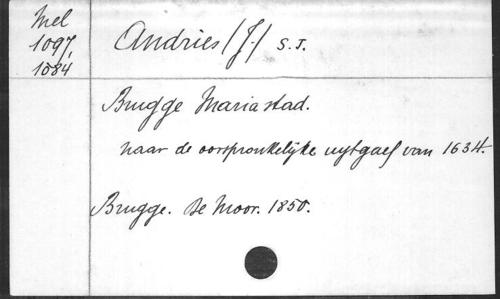 Mel
1097,
1084
Andries (J.) S.J.
Brugge Mariastad.
naar de oorspronkelijke uytgaef van 1634.
Brugge. De Moor. 1850.